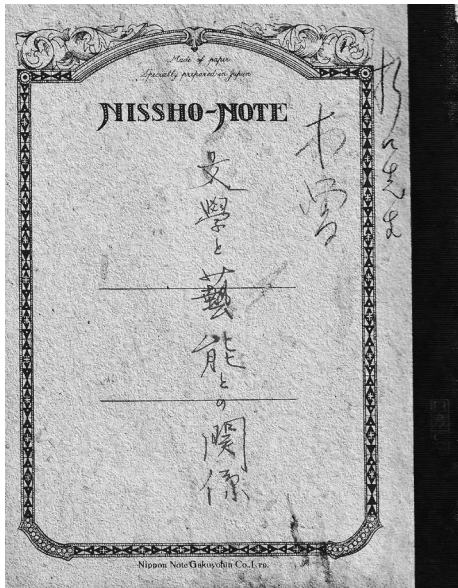 Made of paper
Specially prepared in Japan
NISSHO-NOTE
文學と藝能との関係
Nippon Note Gakuyohin Co.,Ltd.